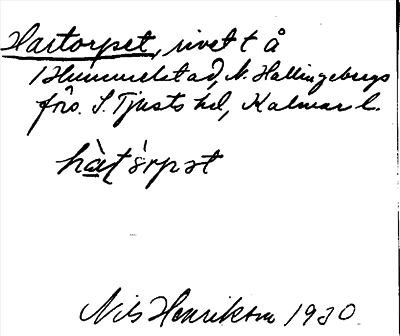 Hartorpet, rivet t å
Hummelstad, N. Hallingebergs
förs. S. Tjusts hd, Kalmar l.
hàṭórpət
Nils Henrikson 1930